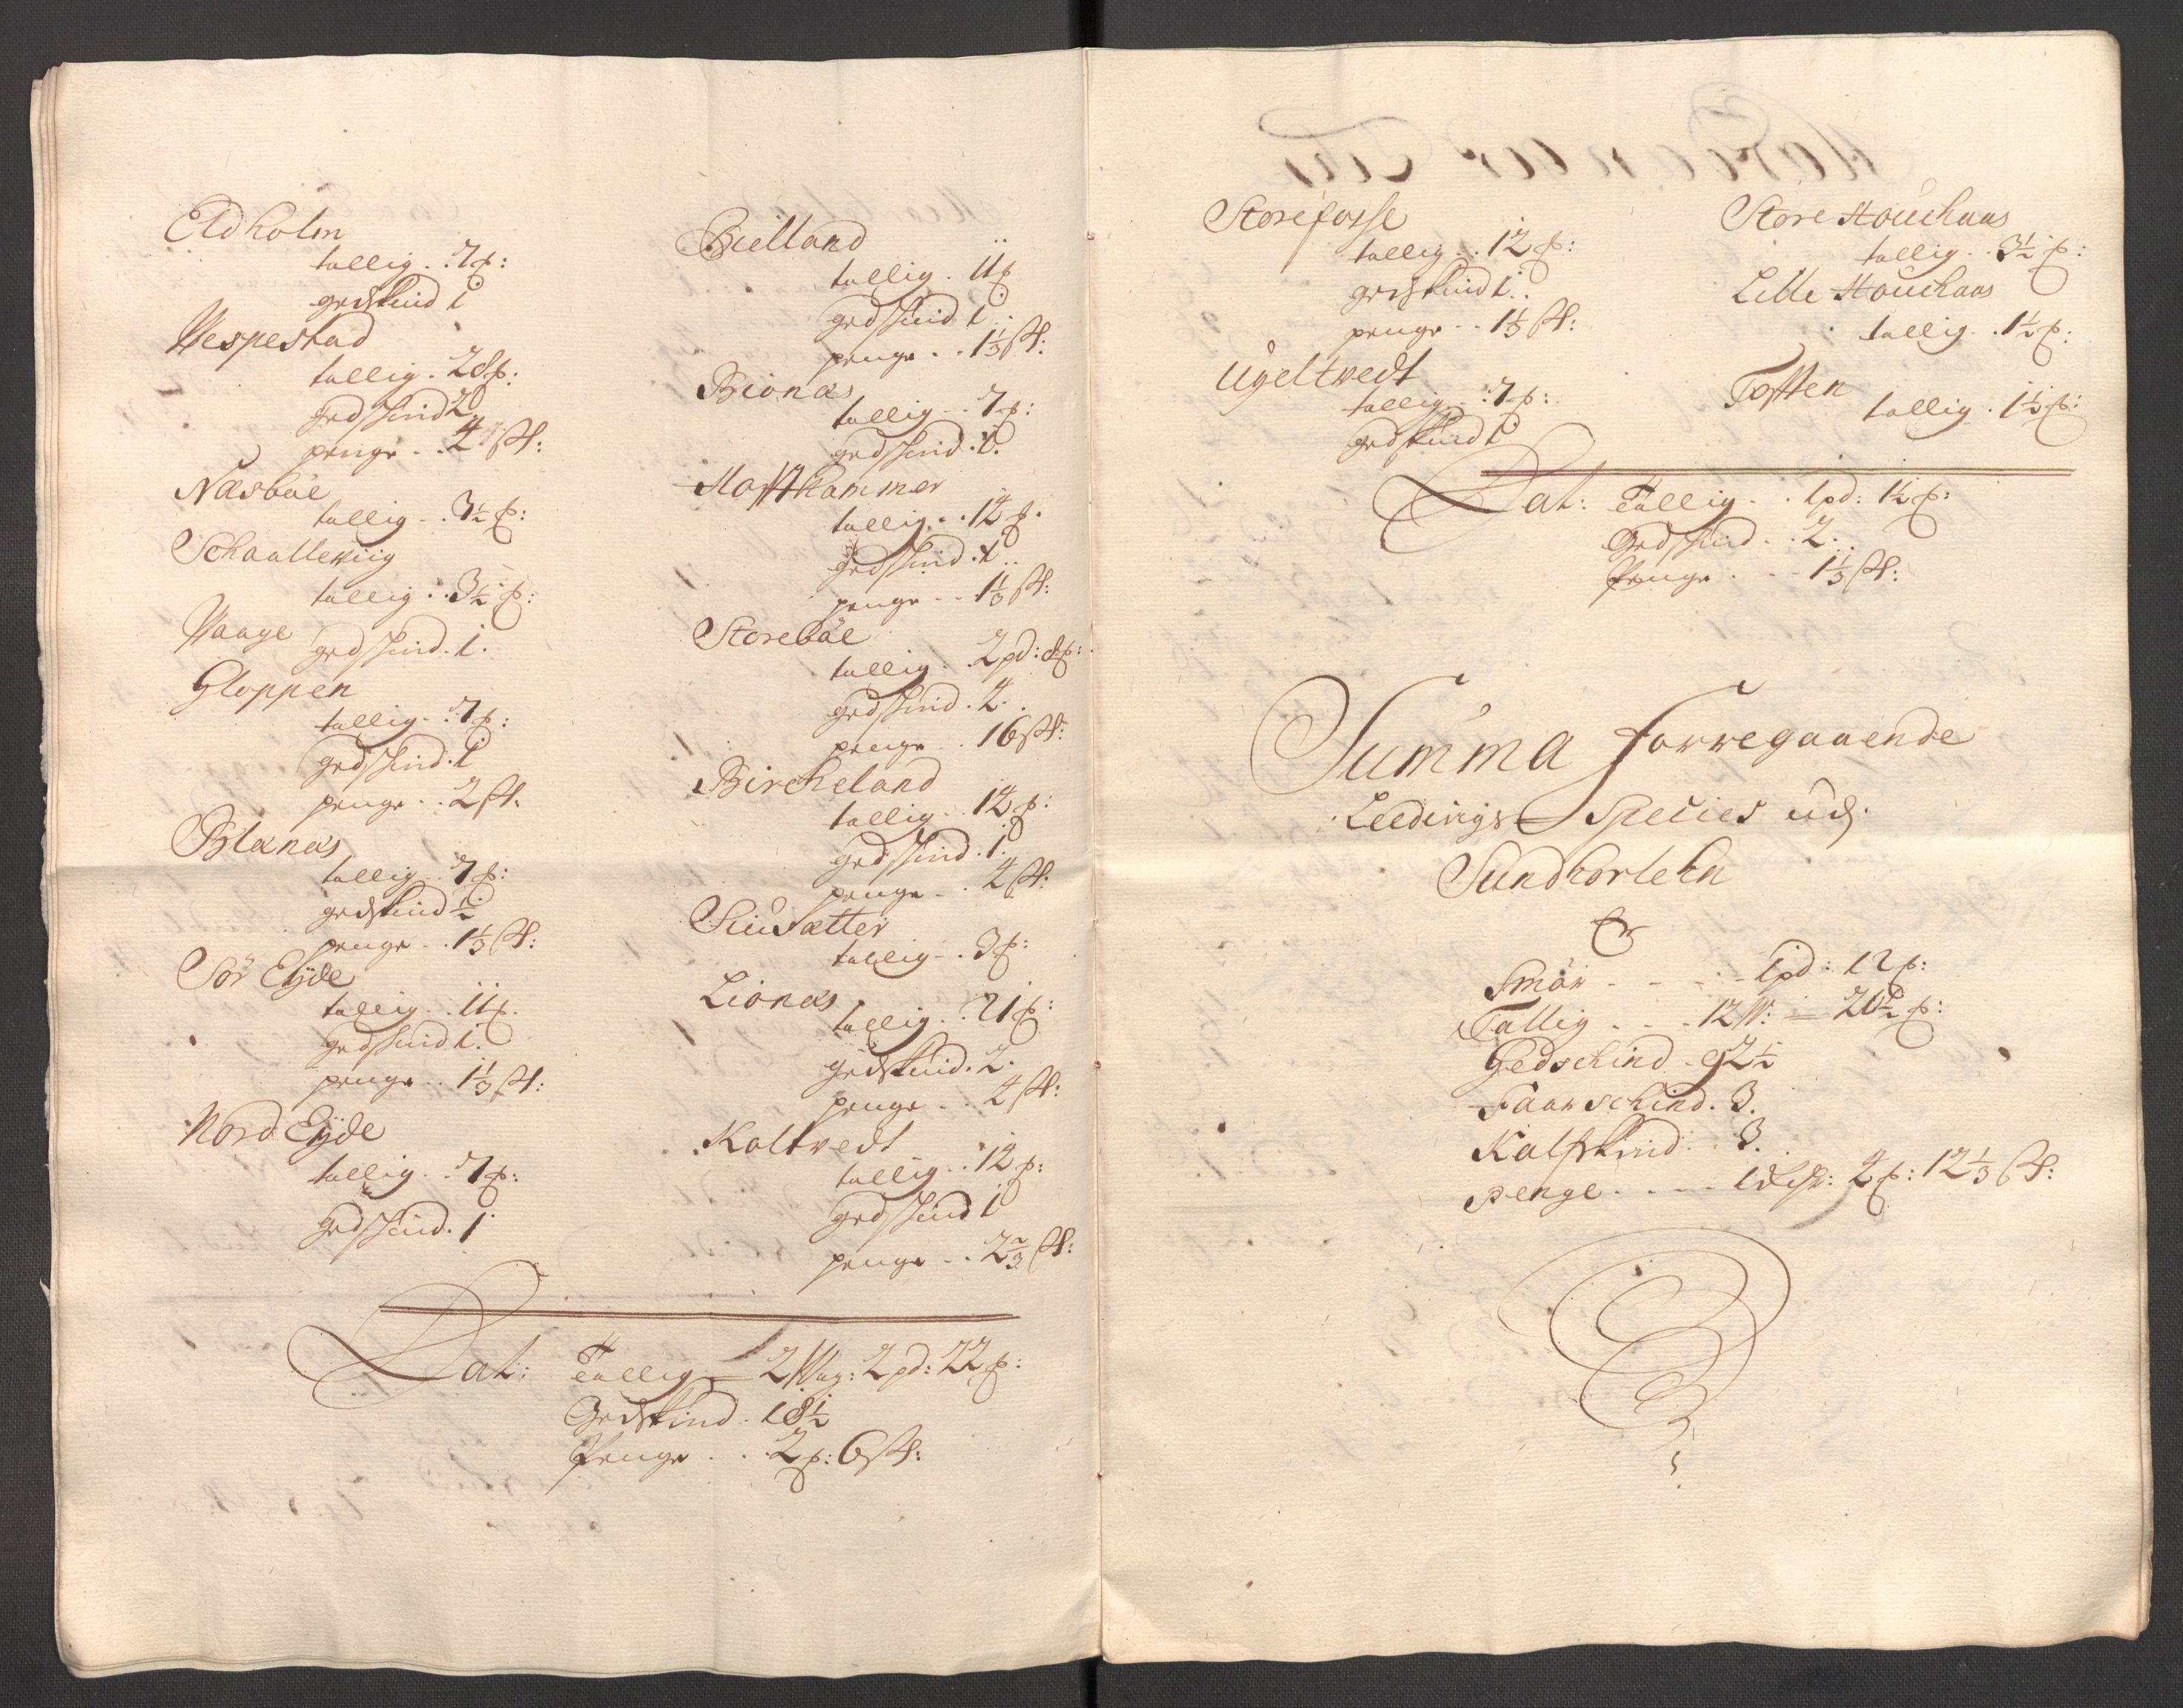 Eldholm
tallig . . 7 p:
gedskind 1
Vespestad
tallig . 28 p:
gedskind 2
penge . . 4 st:
Næsbøe
tallig . . 3½ p:
Schaalleviig
tallig . . 3½ p:
Vaage gedskind . 1 .
Gloppen
tallig . . 7 p:
gedskind . 1
penge . . 2 st.
Blanæs
tallig . . 7 p:
gedskind ½
penge . . 1⅓ st:
Sör Eÿde
tallig . . 11 p.
gedskind 1 .
penge . . 1⅓ st:
Nord Eÿde
tallig . . 7 p:
gedskind . 1
Bielland
tallig . 11 p
gedskind 1 .
penge . . 1⅓ st:
Bionæs
tallig . . 7 p:
gedskind . 1 .
Hafthammer
tallig . . 14 p.
gedskind . 1 . .
penge . . 1⅓ st:
Storebøe
tallig . . 2 pd: 8 p:
gedskind . 4 . .
penge . . 16 st:
Bircheland
tallig . . 14 p:
gedskind . 1 .
penge . . 4 st:
Siusætter
tallig . . 3 p:
Lionæs
tallig . . 21 p:
gedskind . 2 .
penge . . 4 st:
Koltvedt
tallig . . 14 p:
gedskind 1
penge . . 2⅔ st:
Lat: Tallig – 2 Wog: 2 pd: 22 p:
Gedskind . 18½
Penge . . 2 p: 6 st:
Storefosse
tallig . . 12 p:
gedskind 1 . .
penge . . 1⅓ st:
Ugeltvedt
tallig . . 7 p:
gedskind 1
Store Houchaas
tallig . . 3½ p:
Lille Houchaas
tallig . . 1½ p:
Toften
tallig . 1½ p:
Lat: Tallig . . 1 pd: 1½ p:
Gedskind . . 2 . .
Penge . . . 1⅓ st:
Summa forregaaende
Leedings Species udj
Sundhorlehn
Er
Smör . . . . . 1 pd: 12 p:
Tallig . . . 12 W: – 20½ p:
Gedschind . 92½
Faarschind . 3 .
Kalfskind . . 3 .
Penge . . . . 1 dlr: 4 p: 12⅓ st: